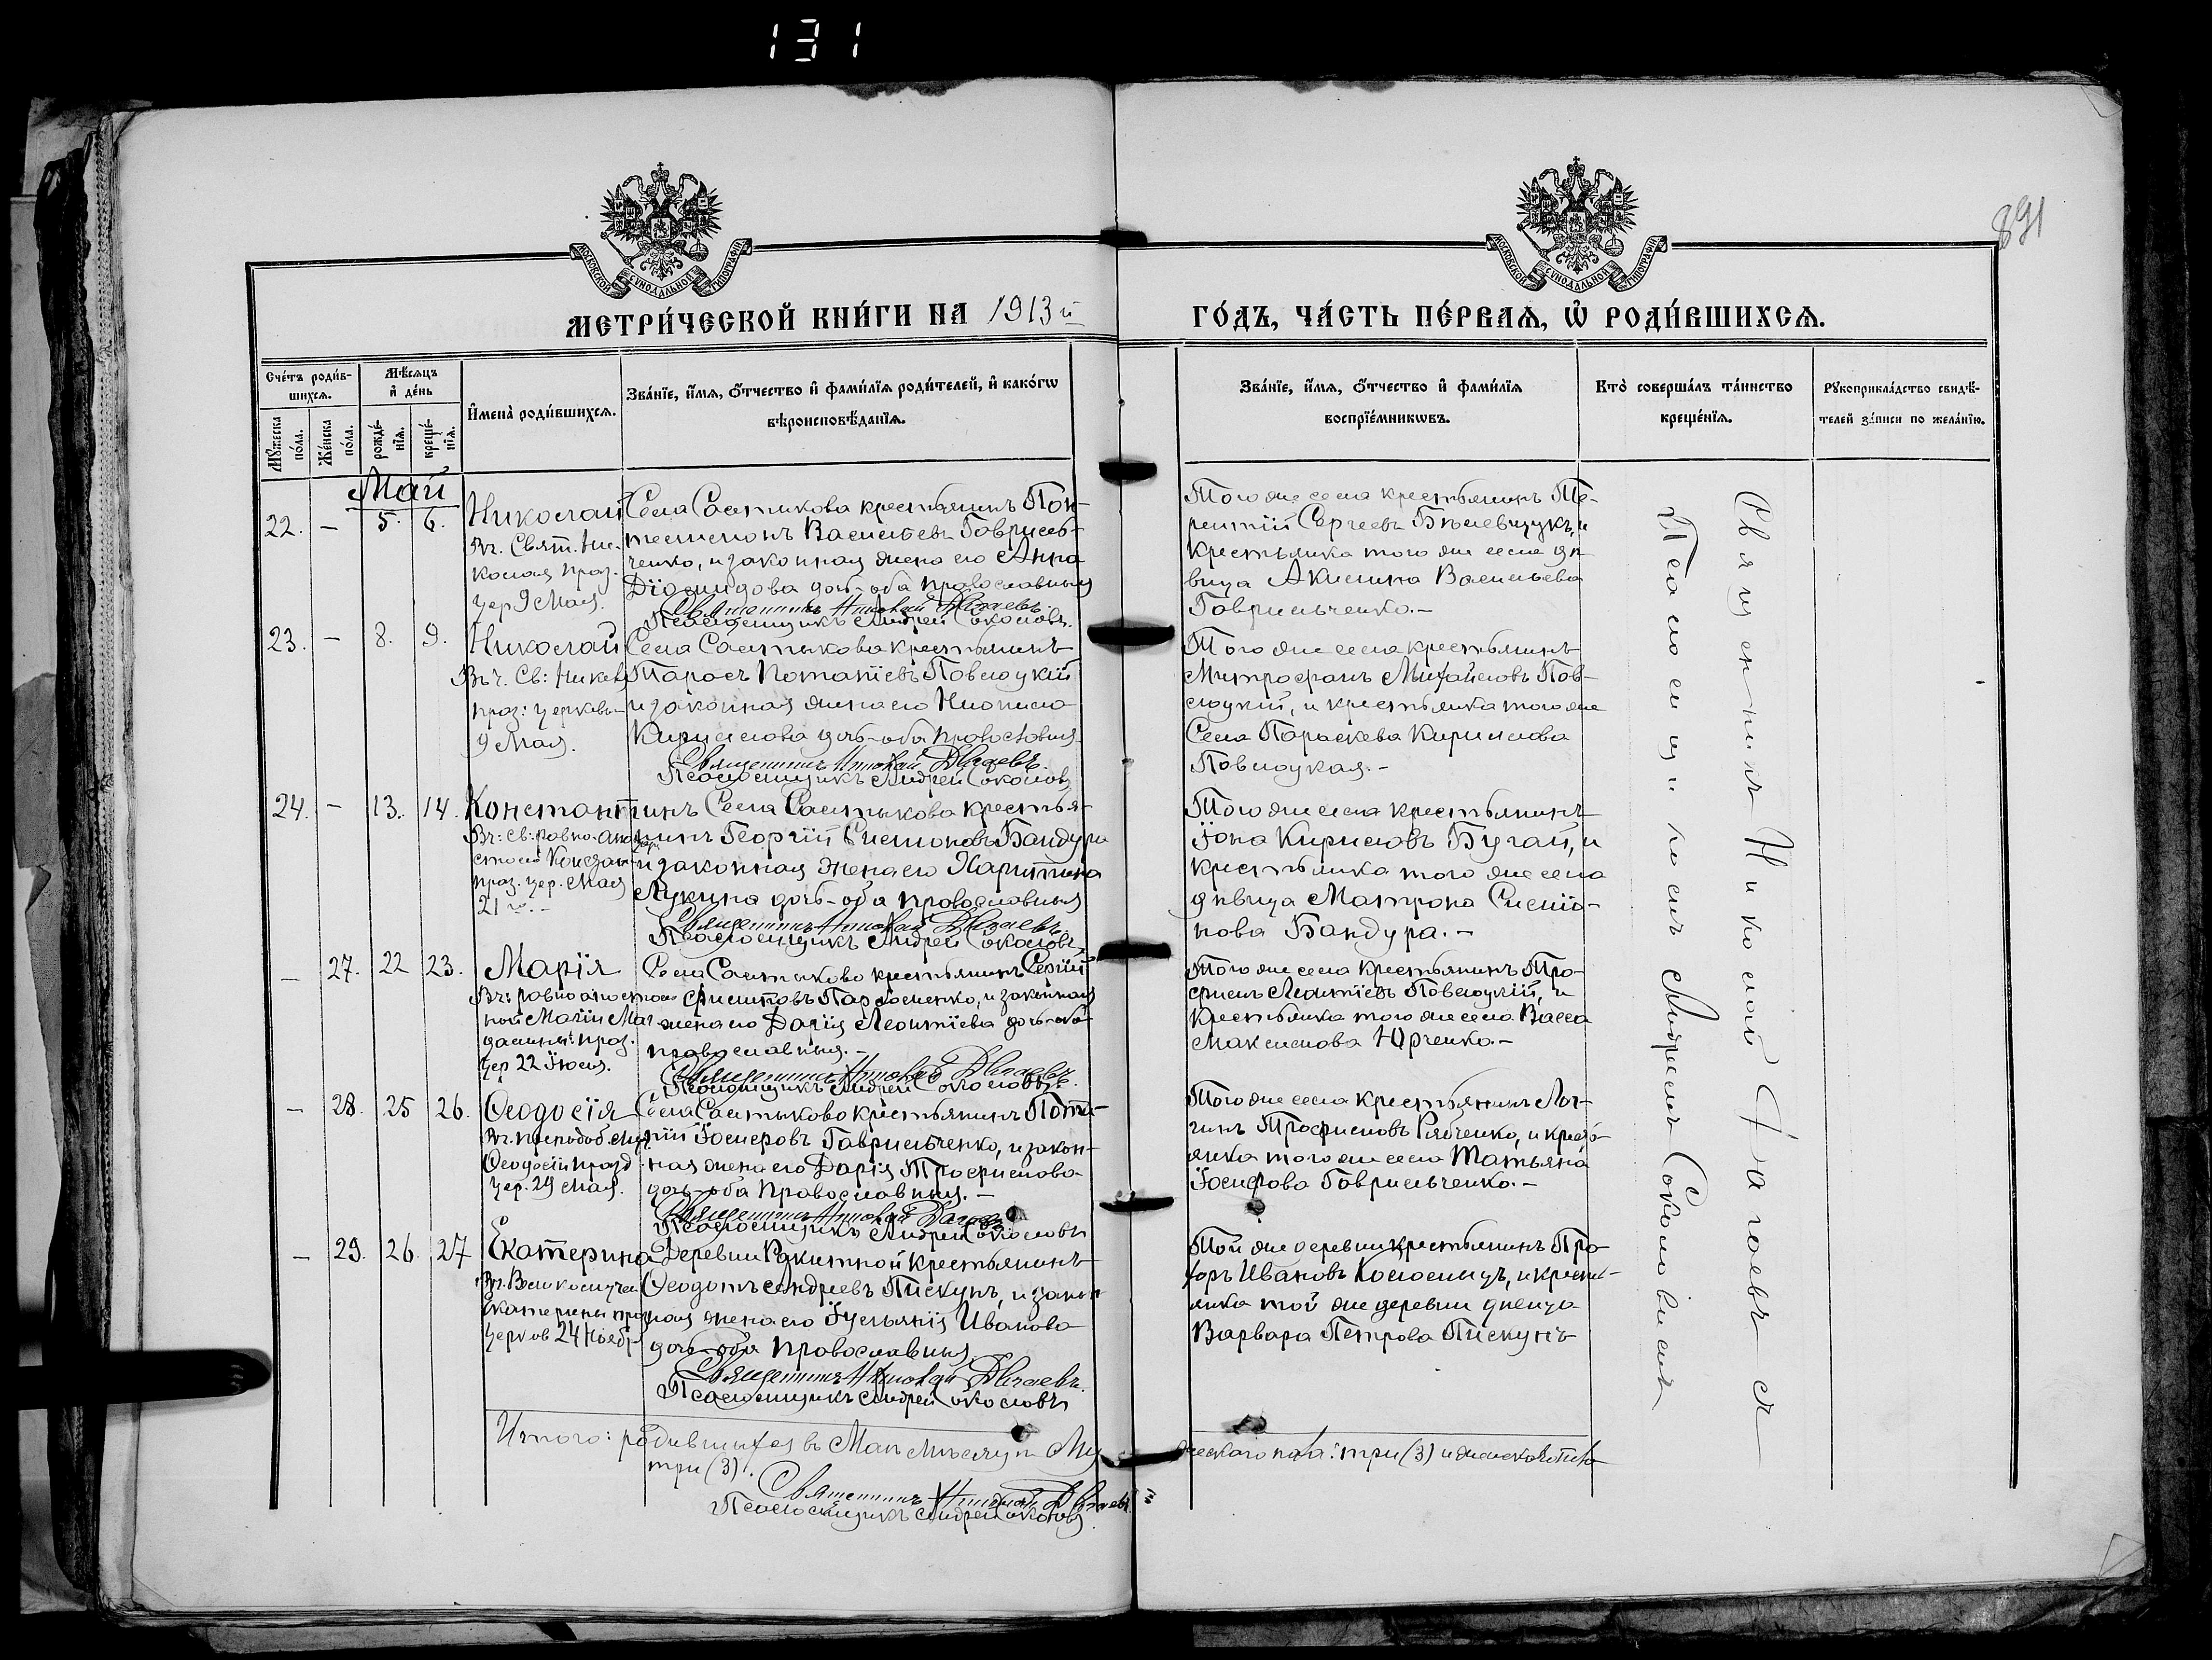 131
891
МОСКОВСКОЙ СѴНОДАЛЬНОЙ ТИПОГРАФІИ
МОСКОВСКОЙ СѴНОДАЛЬНОЙ ТИПОГРАФІИ
МЕТРИ́ЧЕСКОЙ КНИ́ГИ НА 1913 й
ГО́ДЪ, ЧА́СТЬ ПЕ́РВАѦ, Ѽ РОДИ́ВШИХСѦ.
Сче́тъ роди́в-
шихсѧ.
Мѣ́сѧцъ
и҆ де́нь
Мꙋ́жеска
по́ла.
Же́нска
по́ла.
рожде́-
нїѧ.
креще́-
нїѧ.
И҆мена̀ роди́вшихсѧ.
Зва́нїе, и҆́мѧ, ѻ҆́тчество и҆ фами́лїѧ роди́телей, и҆ како́гѡ
вѣроисповѣ́данїѧ.
Зва́нїе, и҆́мѧ, ѻ҆́тчество и҆ фами́лїѧ
воспрїе́мникѡвъ.
Кто̀ соверша́лъ та́инство
креще́нїѧ.
Рꙋкоприкла́дство свидѣ́-
телей за́писи по жела́нїю.
Май
22. - 5. 6.
Николай
Въ. Свят. Ни-
колая праз.
цер 9 Мая.
Села Салтыкова крестьянинъ Пан-
телеимонъ Васильевъ Гаврисев-
ченко, и законная жена его Анна
Діомидова дочь - оба православныя
Священникъ Николай Дагаевъ.
Псаломщикъ Андрей Соколовъ.
Того же села крестьянинъ Те-
рентій Сергеевъ Бѣлевцукъ, и
крестьянка того же села дѣ-
вица Акилина Васильева
Гаврильченко. -
23. - 8. 9.
Николай
Въ ч. Св: Никол
праз: церковь
9 Мая.
Села Салтыкова крестьянинъ
Тарасъ Потапіевъ Повлоцкій
и законная жена его Неонила
Кириллова дочь - оба православныя
Священникъ Николай Дагаевъ.
Псаломщикъ Андрей Соколовъ
Того же села крестьянинъ
Митрофанъ Михайловъ Пов-
лоцкій, и крестьянка того же
Села Параскева Кириллова
Повлоцкая. -
24. - 13. 14.
Константинъ
праз. цер. Мая
21 го. -
Села Салтыкова крестья-
нинъ Георгій Симоновъ Бандура
и законная жена его Харитина
Лукина дочь - оба православныя
Священникъ Николай Дагаевъ.
Псаломщикъ Андрей Соколовъ
Того же села крестьянинъ
Іона Кириловъ Бугай, и
крестьянка того же села
дѣвица Матрона Симо-
нова Бандура. -
- 27. 22 23.
Марія
Въ ч: равноапостоль
ной Маріи Маг
далины: праз.
цер 22 Іюля.
Села Салтыкова крестьянинъ Сергій
Филиповъ Пархоменко, и законная
жена его Дарія Леонтіева дочь - оба
православныя. -
Священникъ Николай Дагаевъ.
Псаломщикъ Андрей Соколовъ
Того же села крестьянинъ Тро-
фимъ Леонтіевъ Повлоцкій, и
крестьянка того же села Васса
Максимова Юрченко. -
- 28. 25 26.
Ѳеодосія
Ѳеодосіи празд
цер. 29 Мая.
Села Салтыкова крестьянинъ Пота-
пій Іосифовъ Гаврильченко, и закон-
ная жена его Дарія Трофимова
дочь - оба православныя. -
Священникъ Николай Дагаевъ
Псаломщикъ Андрей Соколовъ
Того же села крестьянинъ Лог-
гинъ Трофимовъ Рябченко, и кресть-
янка того же села Татьяна
Іосифова Гаврильченко. -
- 29. 26. 27
Екатерина
Въ. Великомучен
Екатерины праз
церков 24 Ноябр
Деревни Ракитной крестьянинъ
Ѳеодотъ Андреевъ Пискунъ, и закон
ная жена его Іуліанія Иванова
дочь - оба православныя
Священникъ Николай Дагаевъ.
Псаломщикъ Андрей Соколовъ
Той же деревни крестьянинъ Про-
хоръ Ивановъ Коломіецъ, и кресть-
янка той же деревни дѣвица
Варвара Петрова Пискунъ
Священникъ Николай Дагаевъ съ
Псаломщикомъ Андреемъ Соколовымъ
Итого: родившихся въ Маѣ мѣсяцѣ Му
жескаго пола: три (3) и женскаго пола
три (3).
Священникъ Николай Дагаевъ
Псаломщикъ Андрей Соколовъ